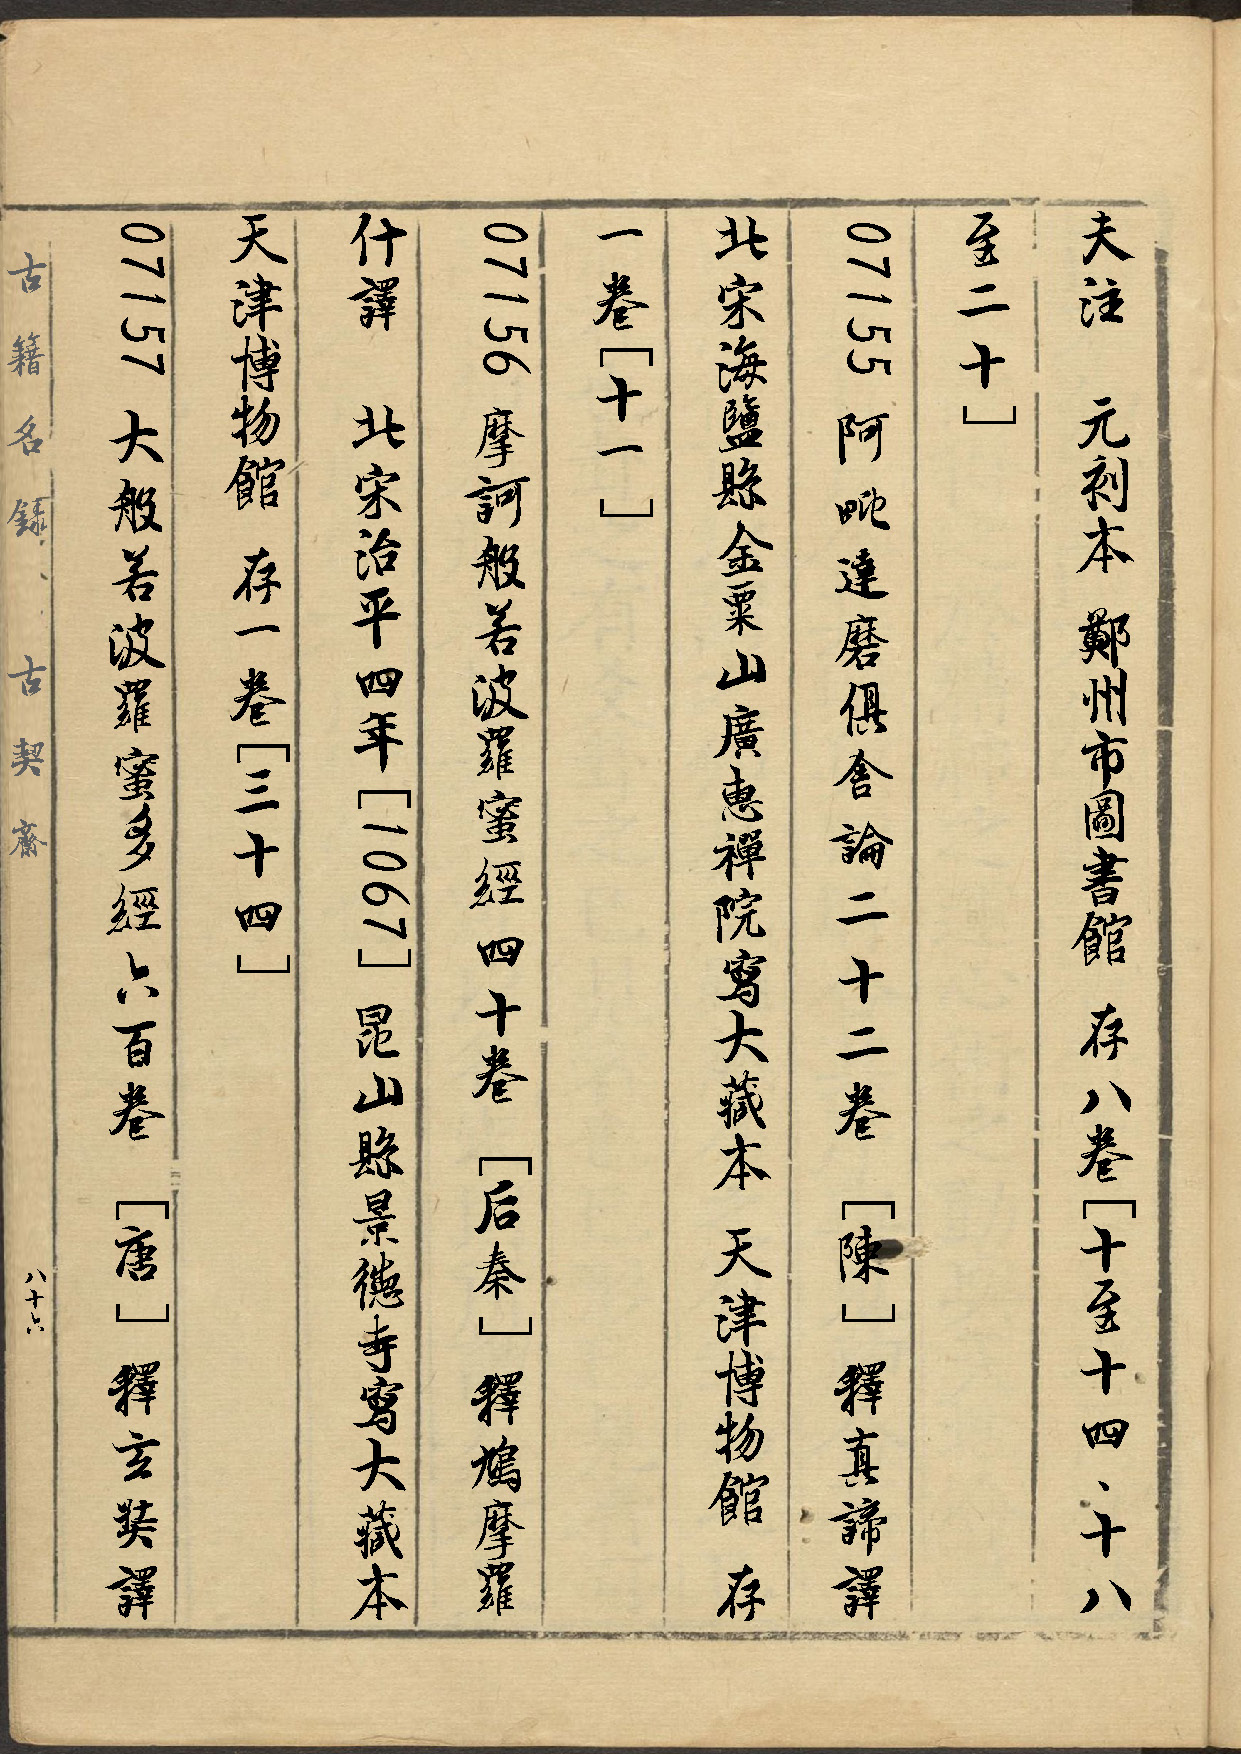 夫注 元刻本 鄭州市圖書館 存八卷[十至十四、十八
至二十]
07155 阿毗達磨俱舍論二十二卷 [陳] 釋真諦譯
北宋海鹽縣金粟山廣惠禪院寫大藏本 天津博物館 存
一卷[十一]
07156 摩訶般若波羅蜜經四十卷 [后秦] 釋鳩摩羅
什譯 北宋治平四年[1067] 昆山縣景德寺寫大藏本
天津博物館 存一卷[三十四]
07157 大般若波羅蜜多經六百卷 [唐] 釋玄奘譯
古籍名錄、、古契齋
八十六